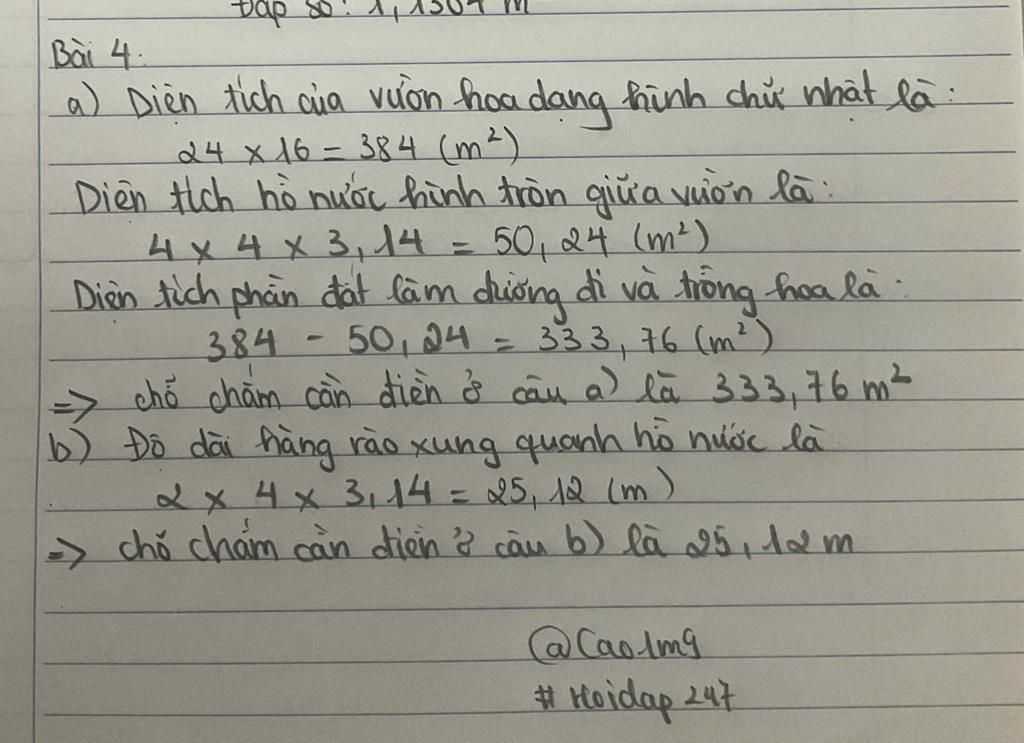 Đáp số: 1,1304 m
Bài 4:
a) Diện tích của vườn hoa dạng hình chữ nhật là:
24 × 16 = 384 (m²)
Diện tích hồ nước hình tròn giữa vườn là:
4 × 4 × 3,14 = 50,24 (m²)
Diện tích phần đất làm đường đi và trồng hoa là:
384 - 50,24 = 333,76 (m²)
=> chỗ chấm cần điền ở câu a) là 333,76 m²
b) Độ dài hàng rào xung quanh hồ nước là
2 × 4 × 3,14 = 25,12 (m)
=> chỗ chấm cần điền ở câu b) là 25,12 m
@Cao1mg
# Hoidap 247